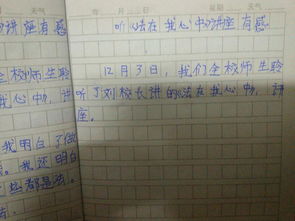 》讲座有感
全校师生聆
我心中》,讲
我明白了做
。我还明白
些都是法。
天气
星期 天气
听《法在我心中》讲座有感
12月3日,我们全校师生聆
听了刘校长讲的《法在我心中》,讲
座。